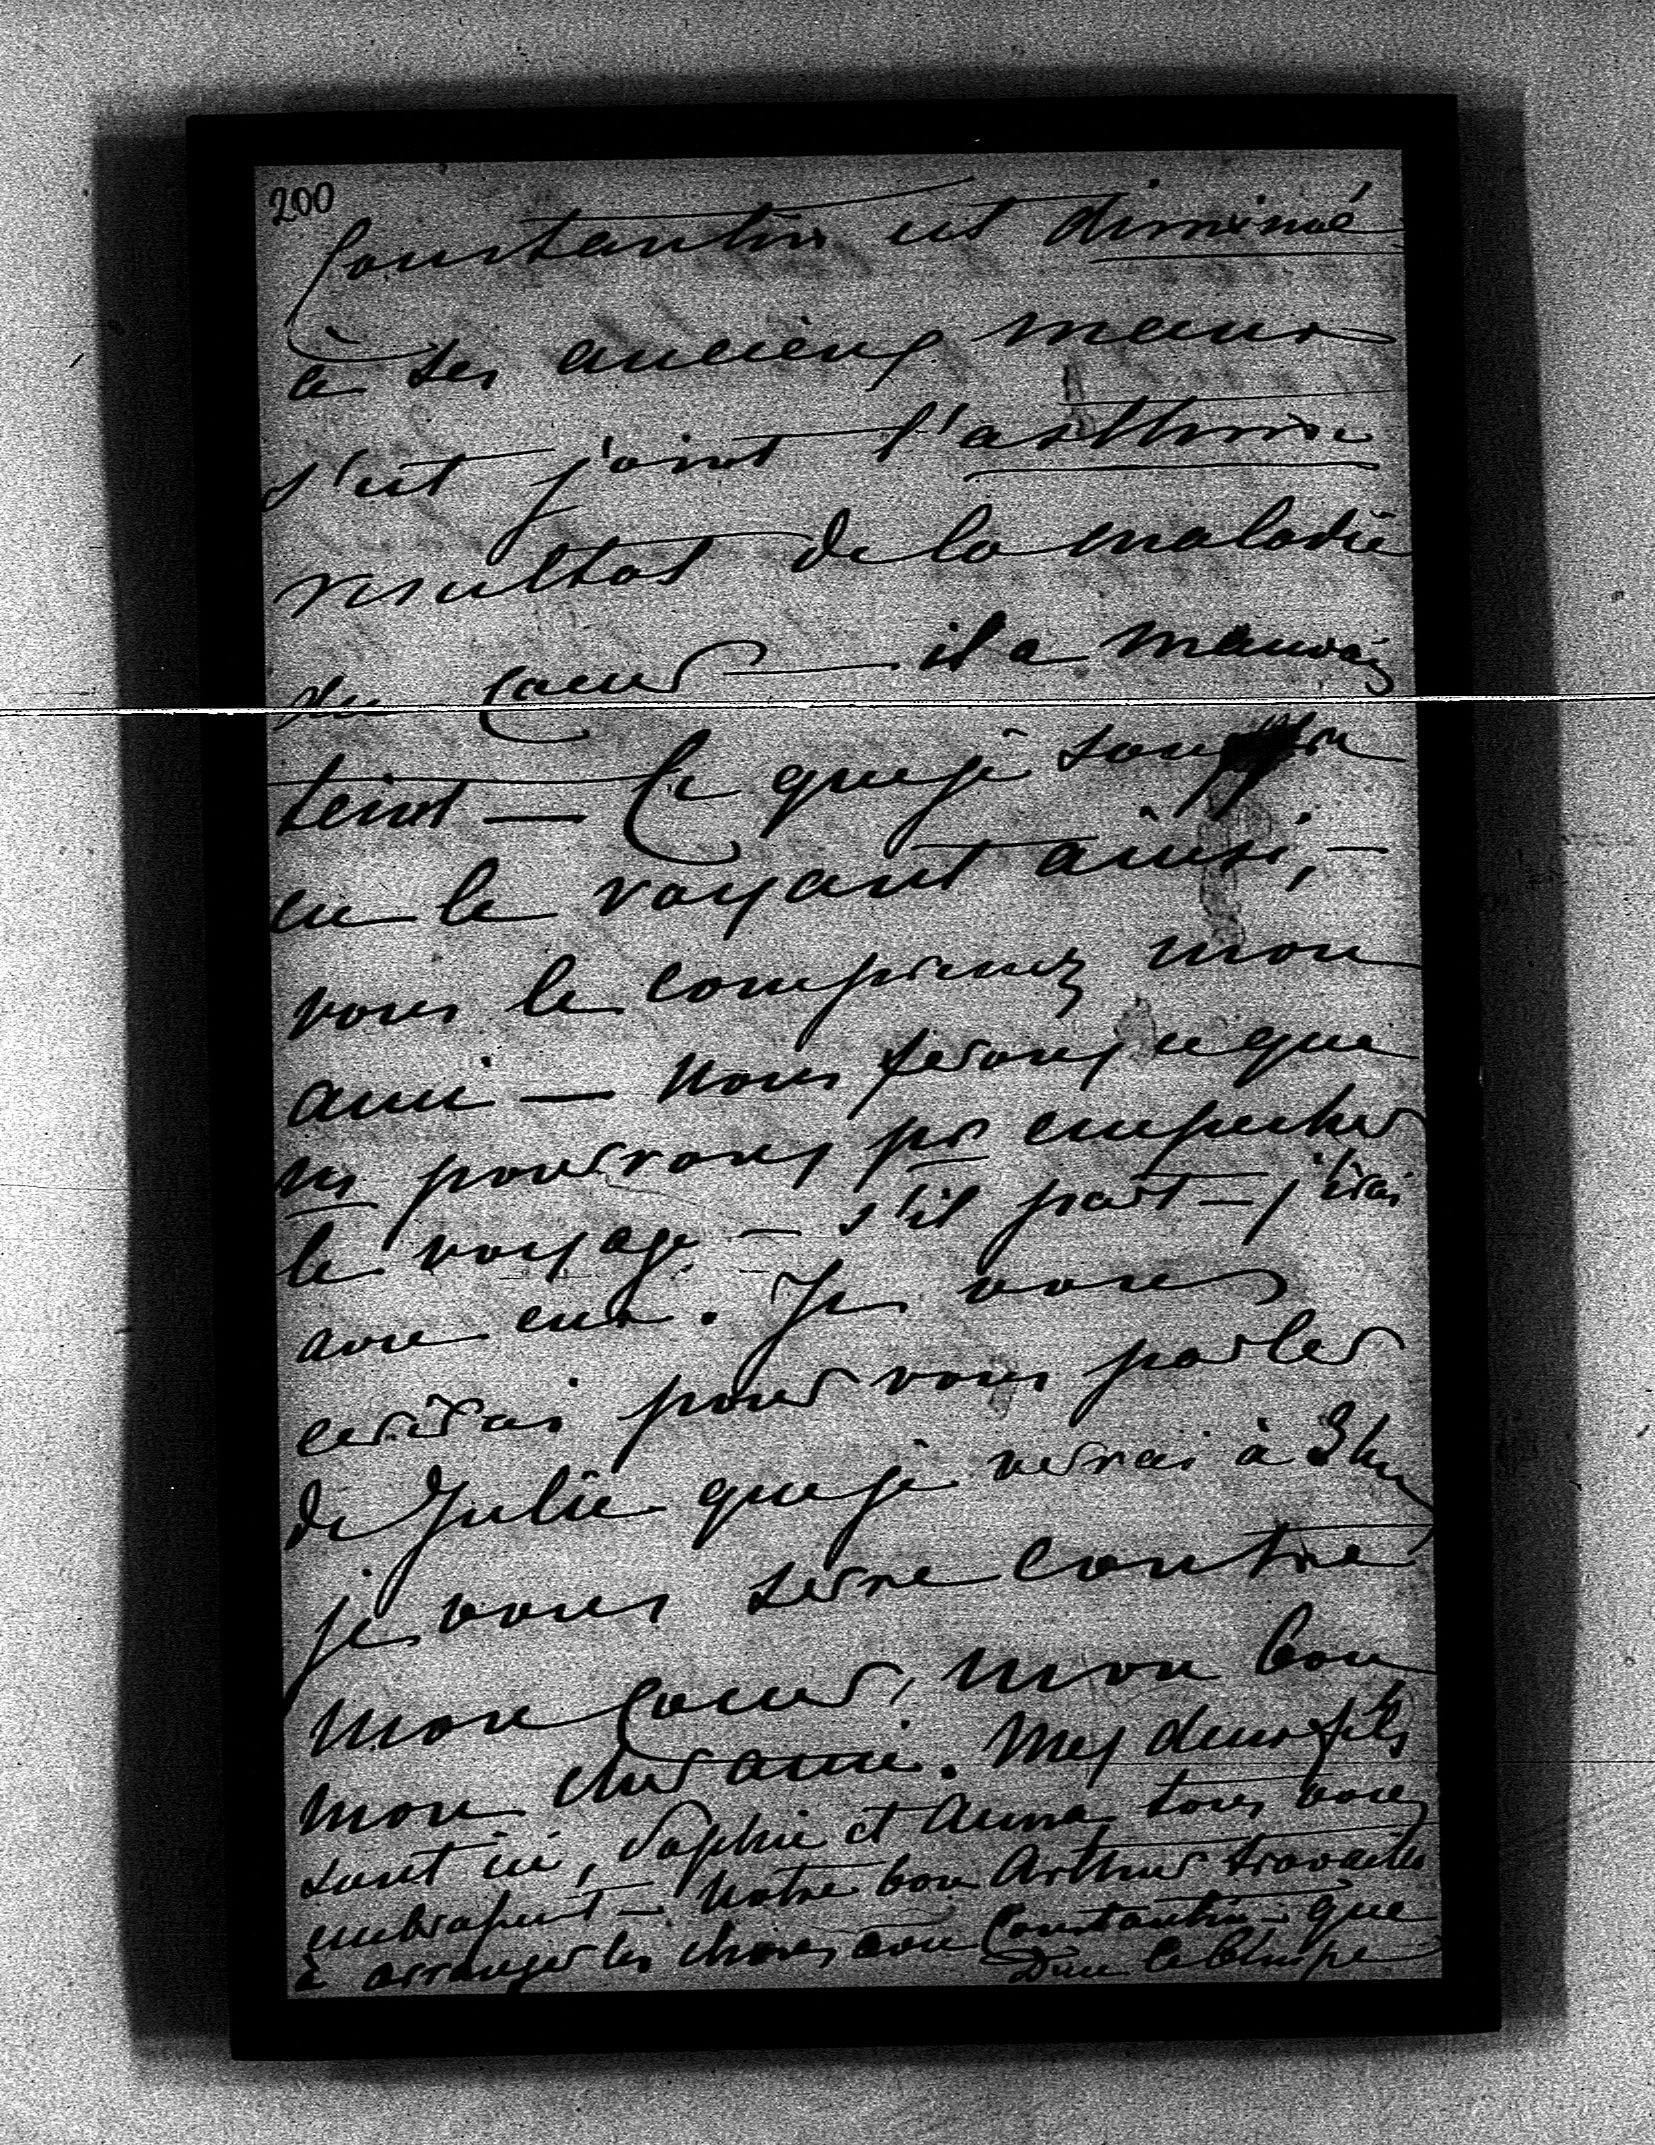 200
Constantin est diminué
à ses anciens maux
s'est joint l'asthme
resultat de la maladie
du Cœur — il a mauvais
teint — Ce que je souffre
en le voyant ainsi, —
vous le comprenez mon
ami — Nous ferons ce que
ns pourrons pr empecher
le voyage — s'il part — j'irai
avec eux. Je vous
ecrirai pour vous parler
de Julie que je verrai à 3 h
je vous serre contre
mon Cœur, mon bon
mon cher ami. Mes deux fils
sont ici, Sophie et Anna tous vous
embrassent — Notre bon Arthur travaille
à arranger les choses avec Constantin — que
Dieu le